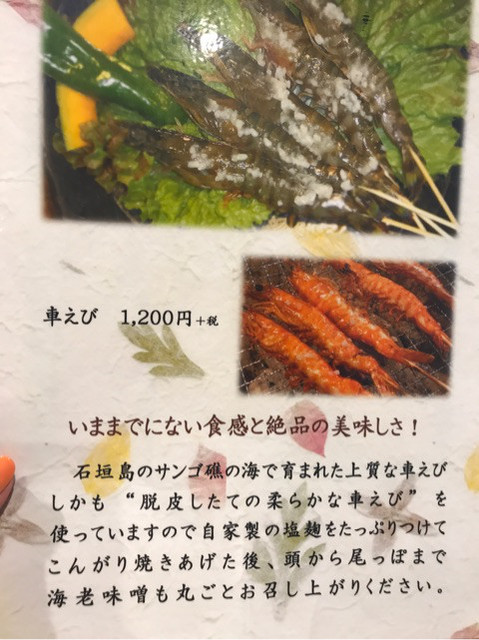 車えび 1,200円+税
いままでにない食感と絶品の美味しさ！
石垣島のサンゴ礁の海で育まれた上質な車えび
しかも“脱皮したての柔らかな車えび”を
使っていますので自家製の塩麹をたっぷりつけて
こんがり焼きあげた後、頭から尾っぽまで
海老味噌も丸ごとお召し上がりください。